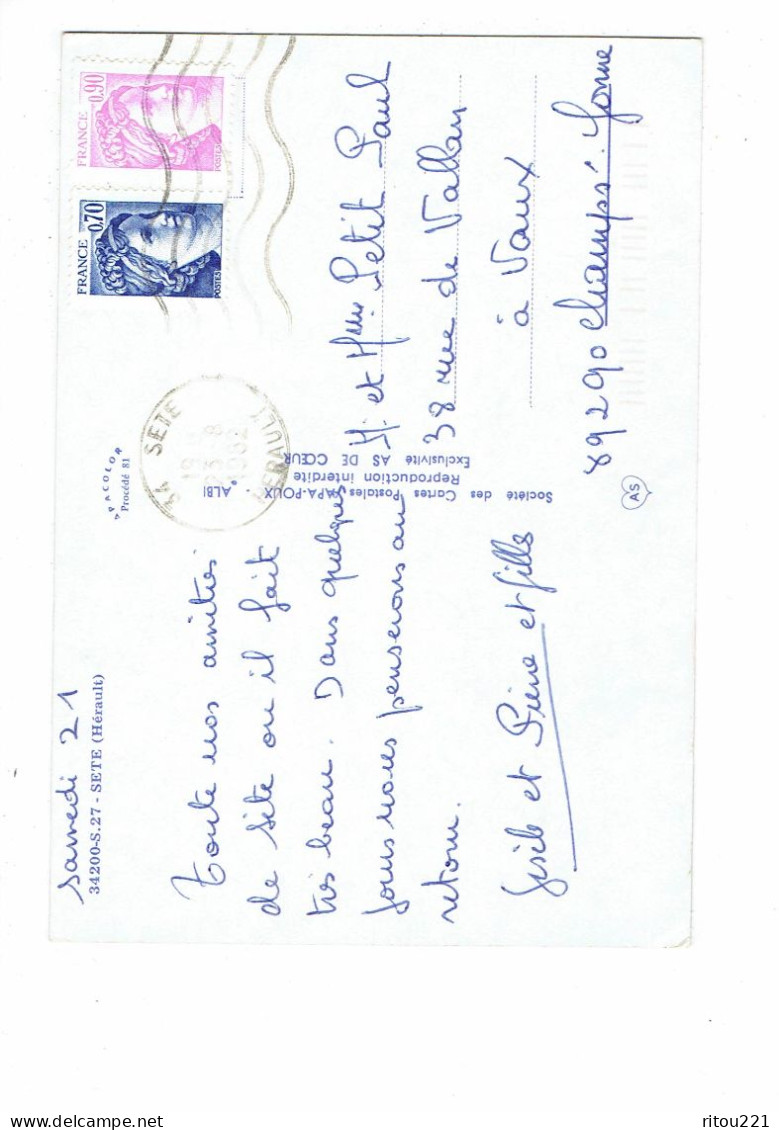 samedi 21
34200-S.27 - SETE (Hérault)
Toute nos amitiés
de Sète ou il fait
très beau. Dans quelques
jours nous penserons au
retour.
Gisèle et Pierre et Gilles
PACOLOR
Procédé 81
34 SETE
19
23-8
1982
HERAULT
Société des Cartes Postales APA-POUX - ALBI
Reproduction interdite
Exclusivité AS DE CŒUR
AS
FRANCE 0,70
POSTES
FRANCE 0,90
POSTES
M. et Mme Petit Paul
38 rue de Vallan
à Vaux
89290 Champs s/ Yonne
ritou221